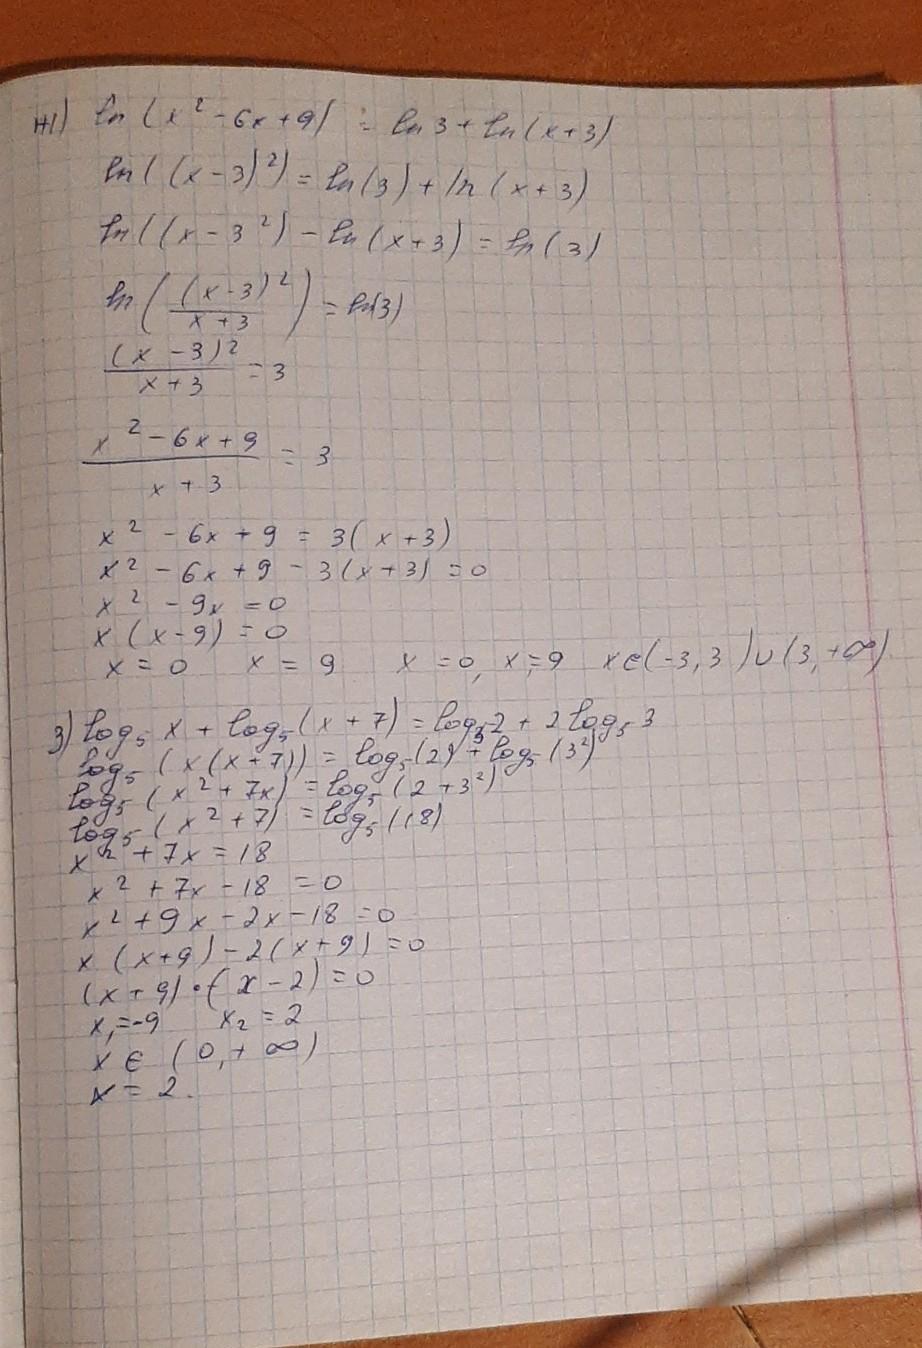 ж) ln (x² - 6x + 9) = ln 3 + ln (x + 3)
ln ((x - 3)²) = ln (3) + ln (x + 3)
ln ((x - 3²) - ln (x + 3) = ln (3)
ln ((x - 3)² / x + 3) = ln(3)
(x - 3)² / x + 3 = 3
x² - 6x + 9 / x + 3 = 3
x² - 6x + 9 = 3(x + 3)
x² - 6x + 9 - 3(x + 3) = 0
x² - 9x = 0
x (x - 9) = 0
x = 0 x = 9 x = 0, x = 9 x ∈ (-3, 3) ∪ (3, +∞)
з) log₅ x + log₅ (x + 7) = log₅ 2 + 2 log₅ 3
log₅ (x (x + 7)) = log₅ (2) + log₅ (3²)
log₅ (x² + 7x) = log₅ (2 + 3²)
log₅ (x² + 7) = log₅ (18)
x² + 7x = 18
x² + 7x - 18 = 0
x² + 9x - 2x - 18 = 0
x (x + 9) - 2 (x + 9) = 0
(x + 9) · (x - 2) = 0
x₁ = -9 x₂ = 2
x ∈ (0, + ∞)
x = 2.